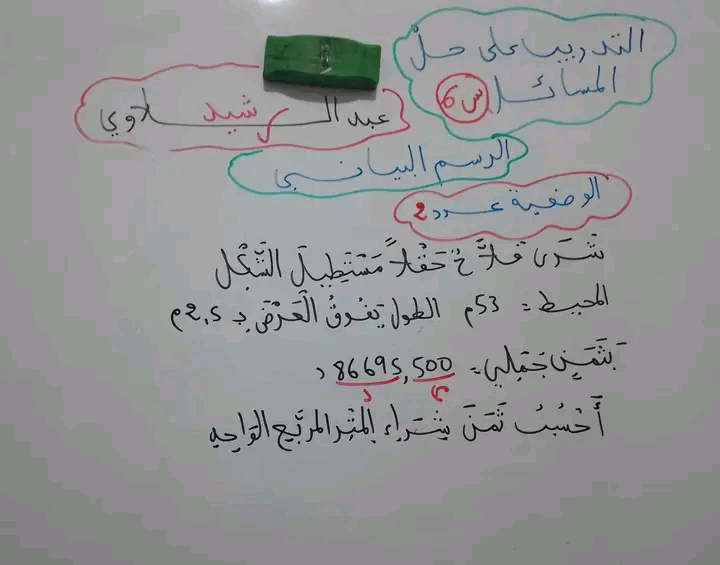 التدريب على حلّ
المسائل س6
عبد الرشيد سلاوي
الرسم البياني
الوضعية عدد 2
شَرَى فَلاَّحٌ حَقْلاً مُسْتَطِيلَ الشَّكْلِ
المحيط = 53م الطول يَفُوقُ الْعَرْضَ بـ 2,5م
بِثَمَنٍ جُمْلِي = 86695,500 د
د م
أَحْسُبُ ثَمَنَ شِرَاءِ الْمِتْرِ الْمُرَبَّعِ الْوَاحِدِ